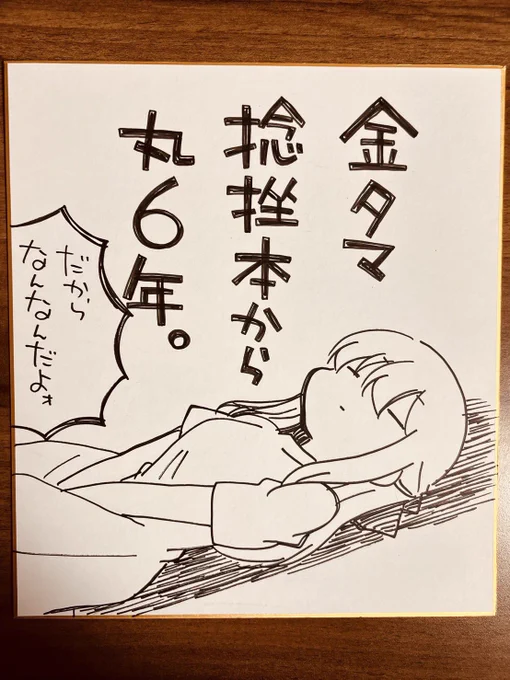 金タマ
捻挫本から
丸6年。
だから
なんなんだよォ